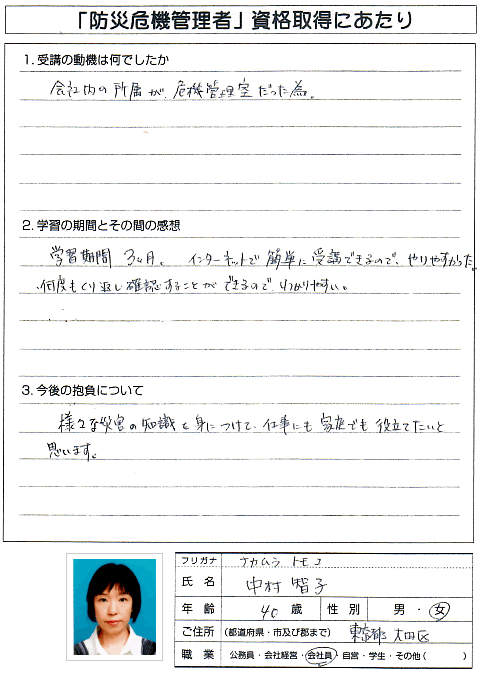 「防災危機管理者」資格取得にあたり
1. 受講の動機は何でしたか
会社内の所属が、危機管理室だった為。
2. 学習の期間とその間の感想
学習期間 3ヶ月。 インターネットで簡単に受講できるので、やりやすかった。
何度もくり返し確認することができるので、わかりやすい。
3. 今後の抱負について
様々な災害の知識を身につけて、仕事にも家庭でも役立てたいと
思います。
フリガナ ナカムラ トモコ
氏名 中村 智子
年齢 40 歳 性別 男・女
ご住所 (都道府県・市及び郡まで) 東京都 大田区
職業 公務員・会社経営・会社員・自営・学生・その他( )